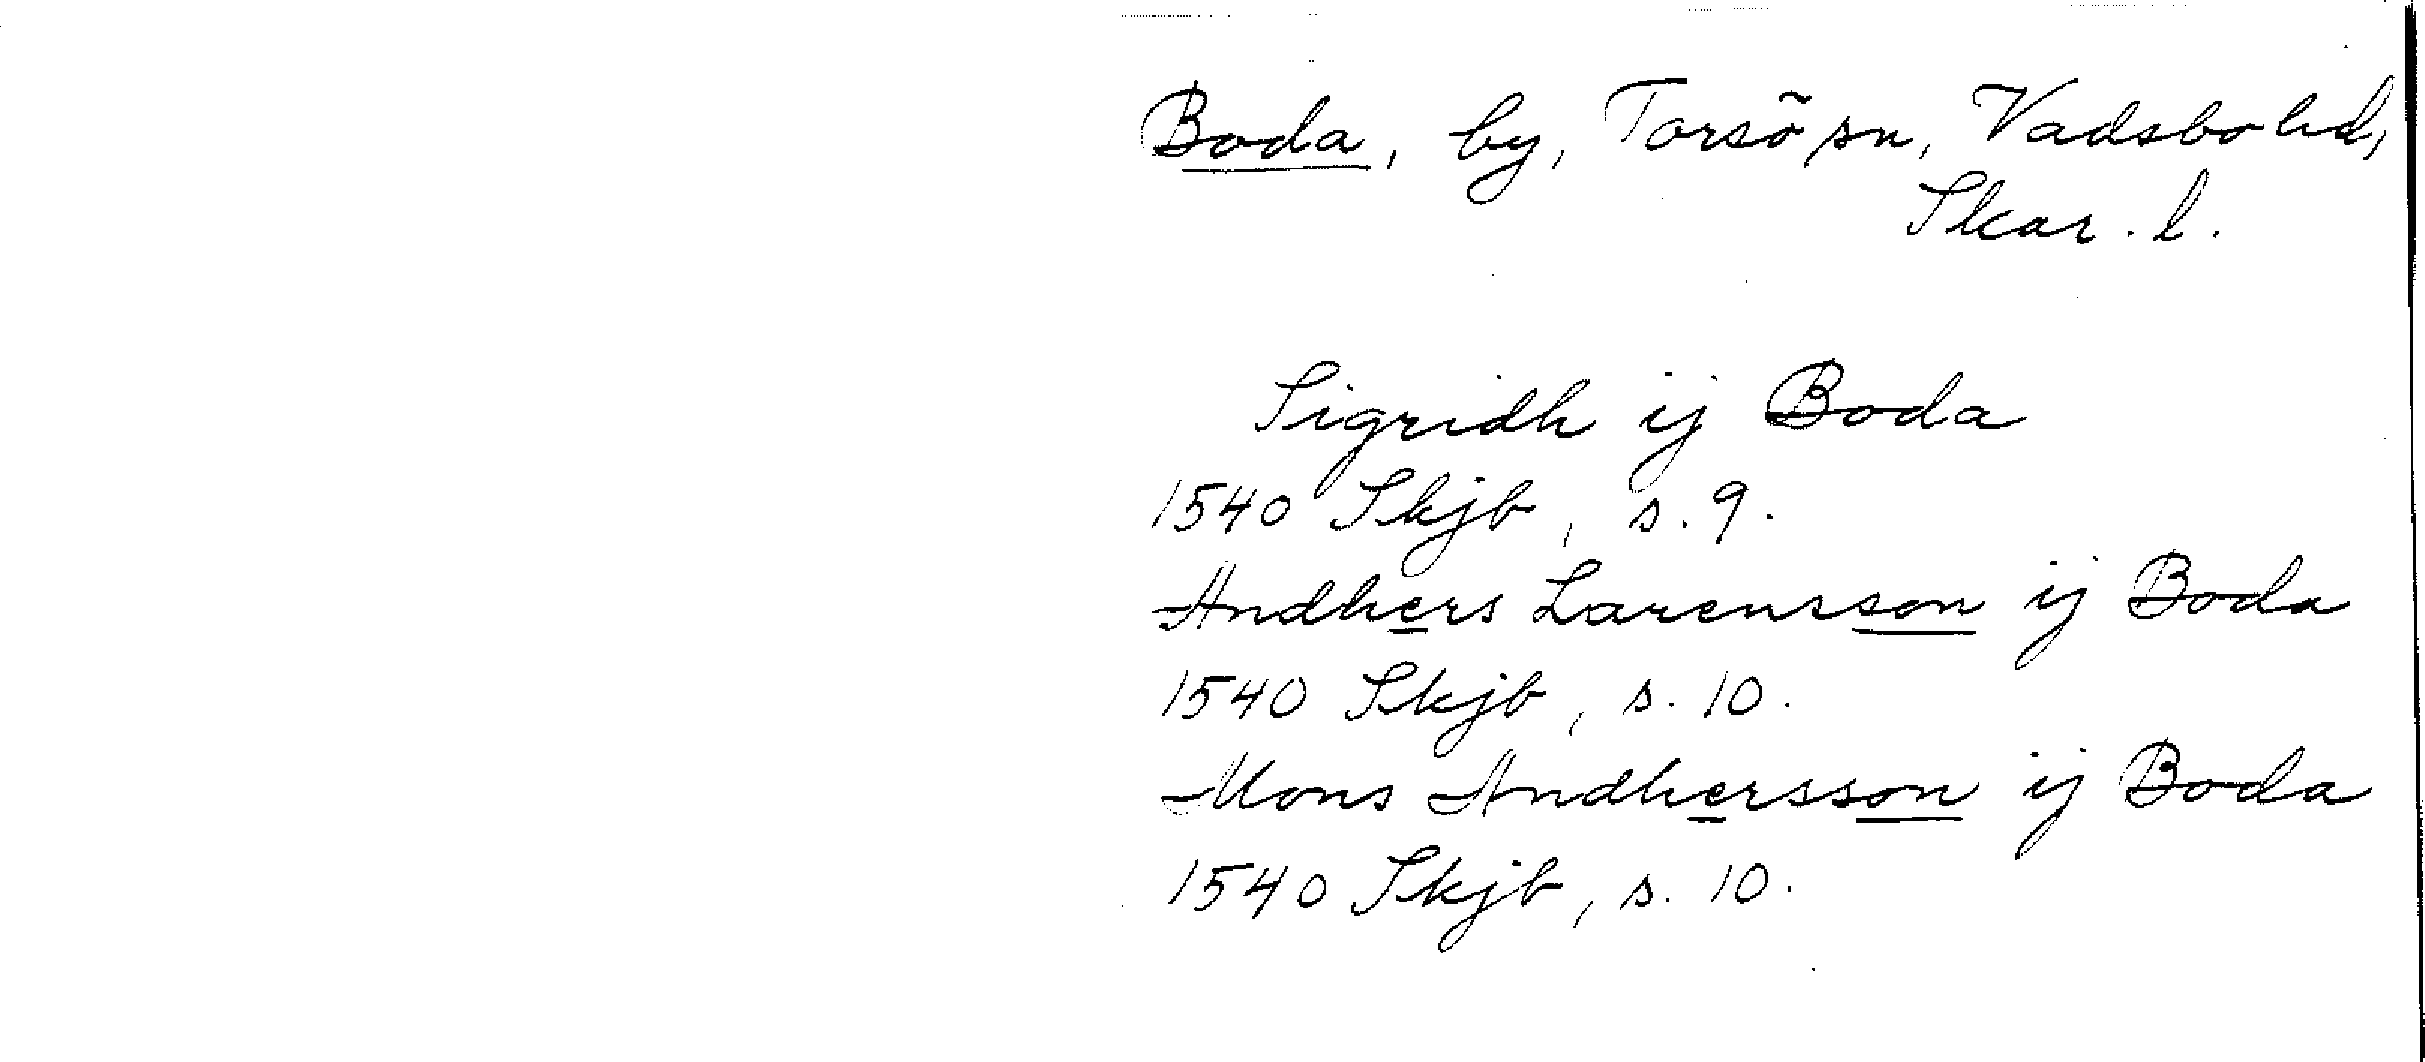 Boda, by, Torsö sn, Vadsbo hd,
Skar. l.
Sigridh ij Boda
1540 Skjb, s. 9.
Andhers Larensson ij Boda
1540 Skjb, s. 10.
Mons Andhersson ij Boda
1540 Skjb, s. 10.